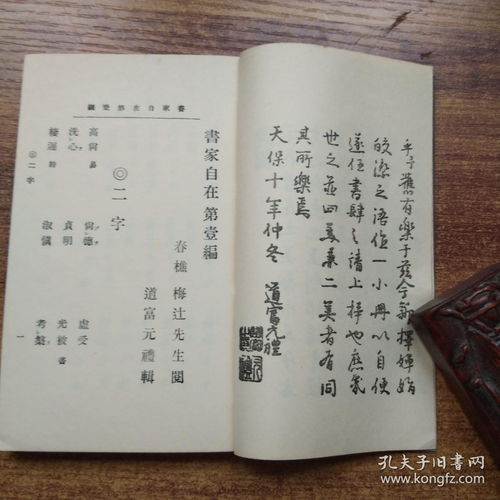 予舊有樂于茲今新擇婵娟
皎潔之語作一小冊以自便
遂任書肆之請上梓也庶幾
世之並四美兼二美者有同
其所樂焉
天保十年仲冬 道富元禮
書家自在第壹編
書家自在 第壹編
春樵 梅辻先生閱
道富元禮輯
◎二字
高尚易 尚德 虛受
洗心 貞明 光被書
棲遲詩 淑慎 考槃
◎二字
一
孔夫子旧书网
www.kongfz.com